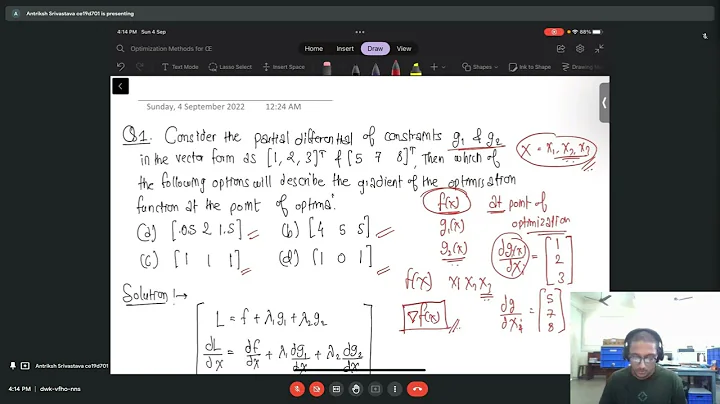 Antriksh Srivastava ce19d701 is presenting
4:14 PM Sun 4 Sep
88%
Optimization Methods for CE
Home Insert Draw View
Text Mode Lasso Select Insert Space Shapes Ink to Shape
Sunday, 4 September 2022 12:24 AM
Q1. Consider the partial differential of constraints g1 & g2
in the vector form as [1, 2, 3]ᵀ & [5 7 8]ᵀ, Then which of
the following options will describe the gradient of the optimisation
function at the point of optima?
(a) [.05 2 1.5] (b) [4 5 5]
(c) [1 1 1] (d) [1 0 1]
X = x1, x2, x3
f(x) at point of
optimization
g1(x)
g2(x)
dg1(x)/dxi = [1 2 3]
f(x) x1 x2 x3
∇f(x)
dg/dxi = [5 7 8]
Solution :→
L = f + λ1g1 + λ2g2
dL/dx = df/dx + λ1 dg1/dx + λ2 dg2/dx
Antriksh Srivastava ce19d701
4:14 PM | dwk-vfho-nns